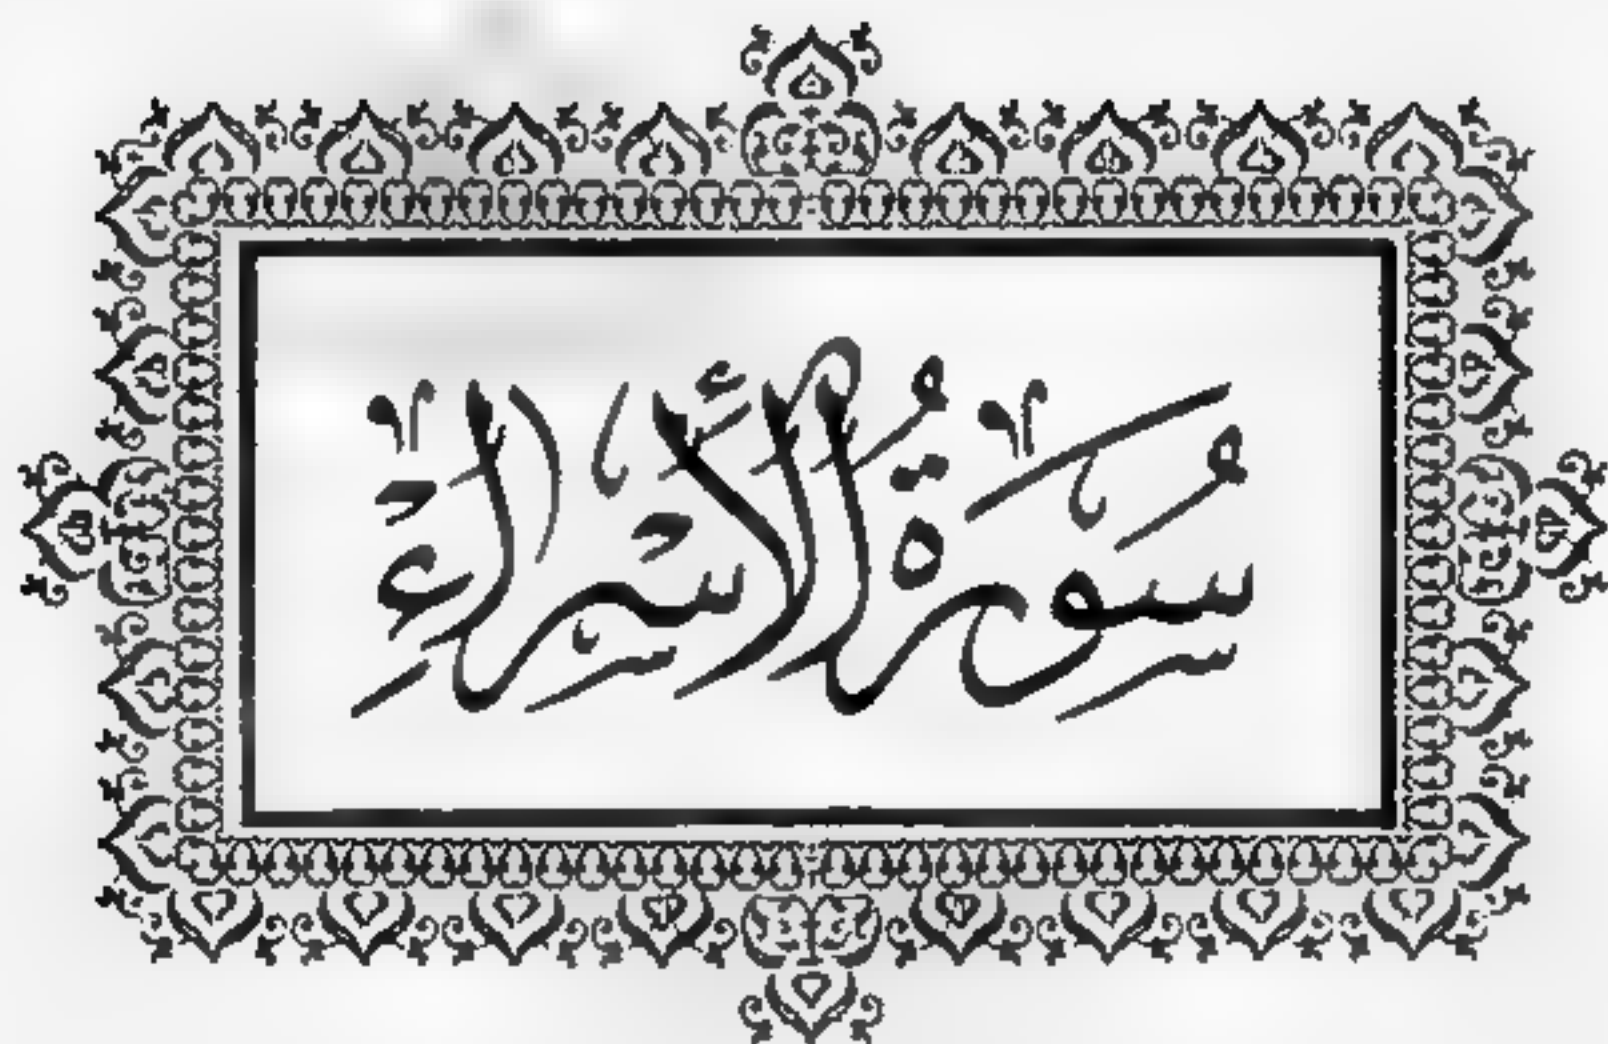 سُورَةُ الأَسْرَاءِ